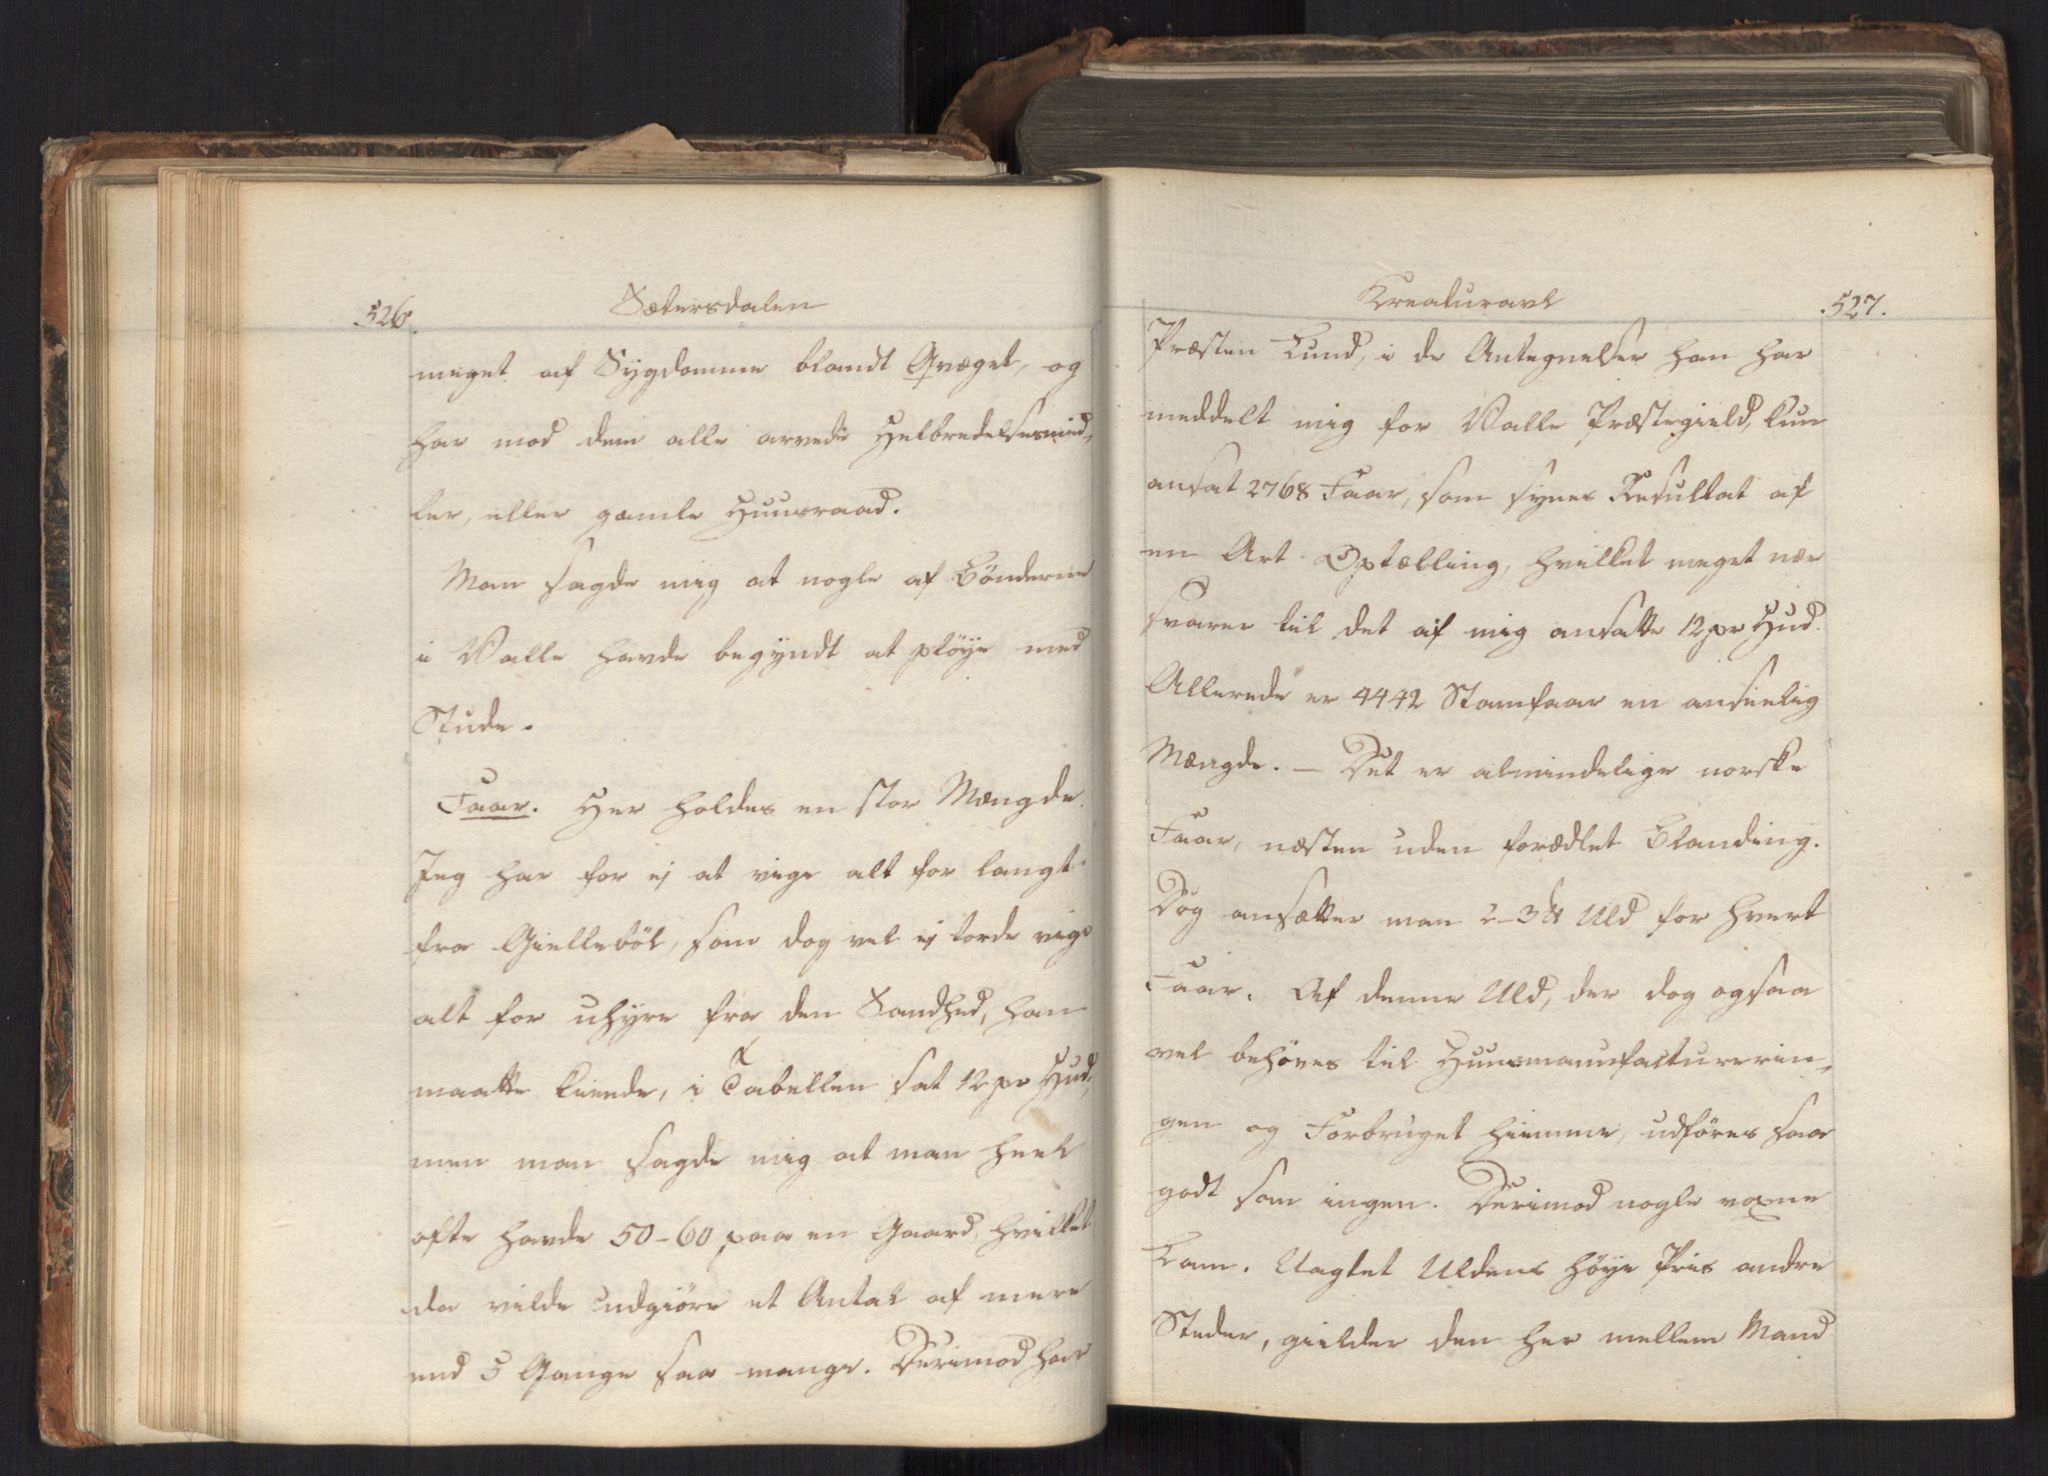 526.
Sætersdalen
meget af Sygdomme blandt Qvæget, og
har mod dem alle arvede Helbredelsesmid-
ler, eller gamle Huusraad.
Man sagde mig at nogle af Bønderne
i Valle havde begyndt at pløye med
Stude.
Faar. Her holdes en stor Mængde.
Jeg har for ej at vige alt for langt
fra Giellebøl, som dog vel ej torde vige
alt for uhyre fra den Sandhed, han
maatte kiende, i Tabellen sat 12 pr Hud,
men man sagde mig at man heel
ofte havde 50-60 paa en Gaard, hvilket
da vilde udgiøre et Antal af mere
end 5 Gange saa mange. Derimod har
Kreaturavl
527.
Præsten Lund, i de Antegnelser han har
meddelt mig for Valle Præstegield, kun
ansat 2768 Faar, som synes Resultat af
en Art Optælling, hvilket meget nær
svarer til det af mig ansatte 12 pr Hud.
Allerede er 4442 Stamfaar en anseelig
Mængde. - Det er almindelige norske
Faar, næsten uden forædlet Blanding.
Dog ansætter man 2-3 ℔ Uld for hvert
Faar. Af denne Uld, der dog ogsaa
vel behøves til Huusmanufacturerin-
gen og Forbruget hiemme, udføres saa
godt som ingen. Derimod nogle voxne
Lam. Uagtet Uldens høye Priis andre
Steder, gielder den her mellem Mand